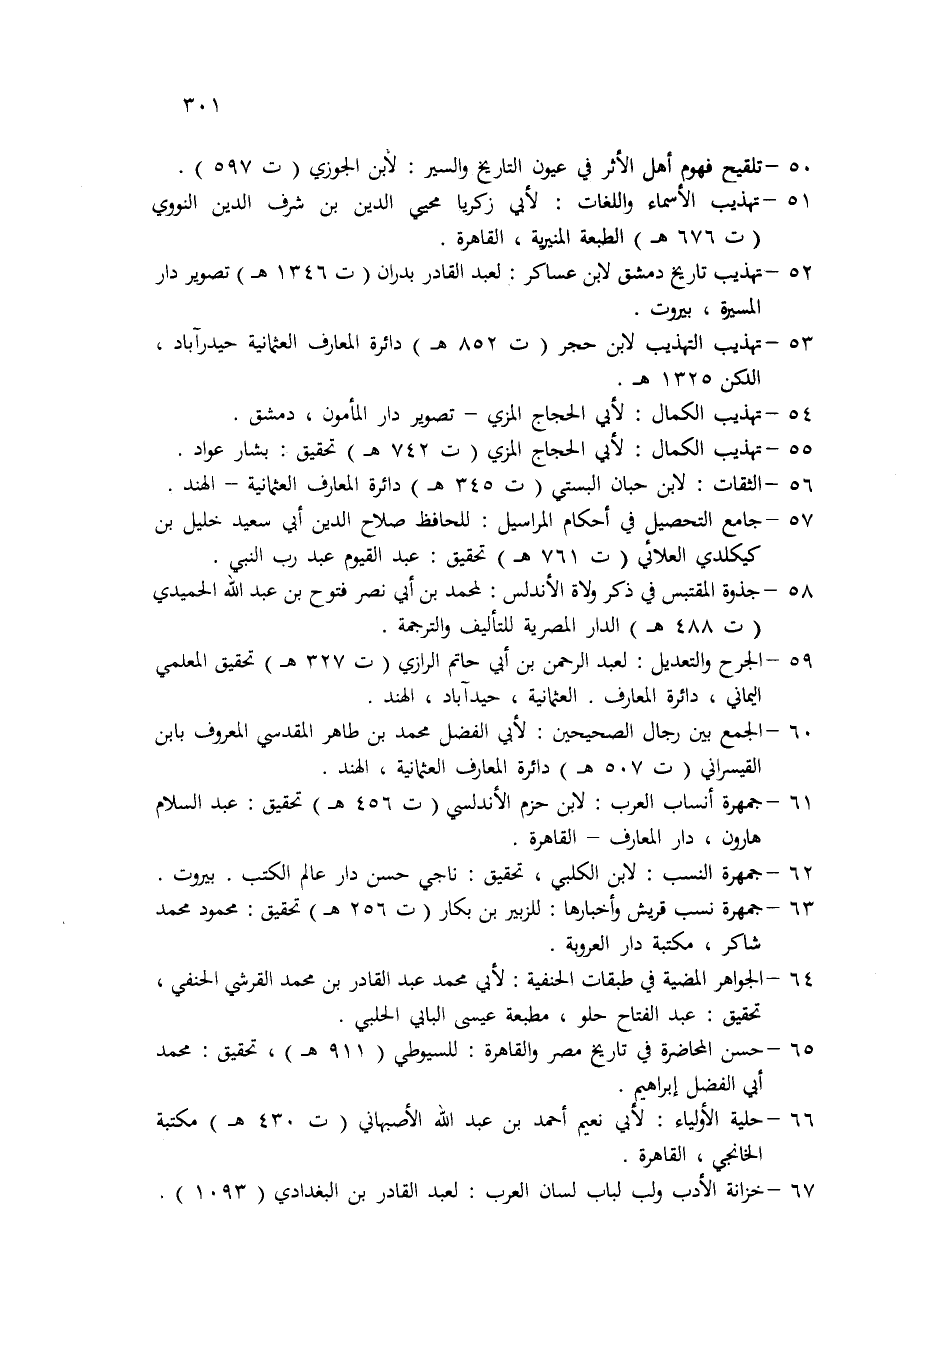 ٣٠١
٥٠ – تلقيح فهوم أهل الأثر في عيون التاريخ والسير : لأبن الجوزي ( ت ٥٩٧ ) .
٥١ – تهذيب الأسماء واللغات : لأبي زكريا محيي الدين بن شرف الدين النووي
( ت ٦٧٦ هـ ) الطبعة المنيرية ، القاهرة .
٥٢ – تهذيب تاريخ دمشق لابن عساكر : لعبد القادر بدران ( ت ١٣٤٦ هـ ) تصوير دار
المسيرة ، بيروت .
٥٣ – تهذيب التهذيب لابن حجر ( ت ٨٥٢ هـ ) دائرة المعارف العثمانية حيدرآباد ،
اللكن ١٣٢٥ هـ .
٥٤ – تهذيب الكمال : لأبي الحجاج المزي – تصوير دار المأمون ، دمشق .
٥٥ – تهذيب الكمال : لأبي الحجاج المزي ( ت ٧٤٢ هـ ) تحقيق : بشار عواد .
٥٦ – الثقات : لابن حبان البستي ( ت ٣٤٥ هـ ) دائرة المعارف العثمانية – الهند .
٥٧ – جامع التحصيل في أحكام المراسيل : للحافظ صلاح الدين أبي سعيد خليل بن
كيكلدي العلائي ( ت ٧٦١ هـ ) تحقيق : عبد القيوم عبد رب النبي .
٥٨ – جذوة المقتبس في ذكر ولاة الأندلس : لمحمد بن أبي نصر فتوح بن عبد الله الحميدي
( ت ٤٨٨ هـ ) الدار المصرية للتأليف والترجمة .
٥٩ – الجرح والتعديل : لعبد الرحمن بن أبي حاتم الرازي ( ت ٣٢٧ هـ ) تحقيق المعلمي
اليماني ، دائرة المعارف . العثمانية ، حيدآباد ، الهند .
٦٠ – الجمع بين رجال الصحيحين : لأبي الفضل محمد بن طاهر المقدسي المعروف بابن
القيسراني ( ت ٥٠٧ هـ ) دائرة المعارف العثمانية ، الهند .
٦١ – جمهرة أنساب العرب : لابن حزم الأندلسي ( ت ٤٥٦ هـ ) تحقيق : عبد السلام
هارون ، دار المعارف – القاهرة .
٦٢ – جمهرة النسب : لابن الكلبي ، تحقيق : ناجي حسن دار عالم الكتب . بيروت .
٦٣ – جمهرة نسب قريش وأخبارها : للزبير بن بكار ( ت ٢٥٦ هـ ) تحقيق : محمود محمد
شاكر ، مكتبة دار العروبة .
٦٤ – الجواهر المضية في طبقات الحنفية : لأبي محمد عبد القادر بن محمد القرشي الحنفي ،
تحقيق : عبد الفتاح حلو ، مطبعة عيسى البابي الحلبي .
٦٥ – حسن المحاضرة في تاريخ مصر والقاهرة : للسيوطي ( ٩١١ هـ ) ، تحقيق : محمد
أبي الفضل إبراهيم .
٦٦ – حلية الأولياء : لأبي نعيم أحمد بن عبد الله الأصبهاني ( ت ٤٣٠ هـ ) مكتبة
الخانجي ، القاهرة .
٦٧ – خزانة الأدب ولب لباب لسان العرب : لعبد القادر بن البغدادي ( ١٠٩٣ ) .